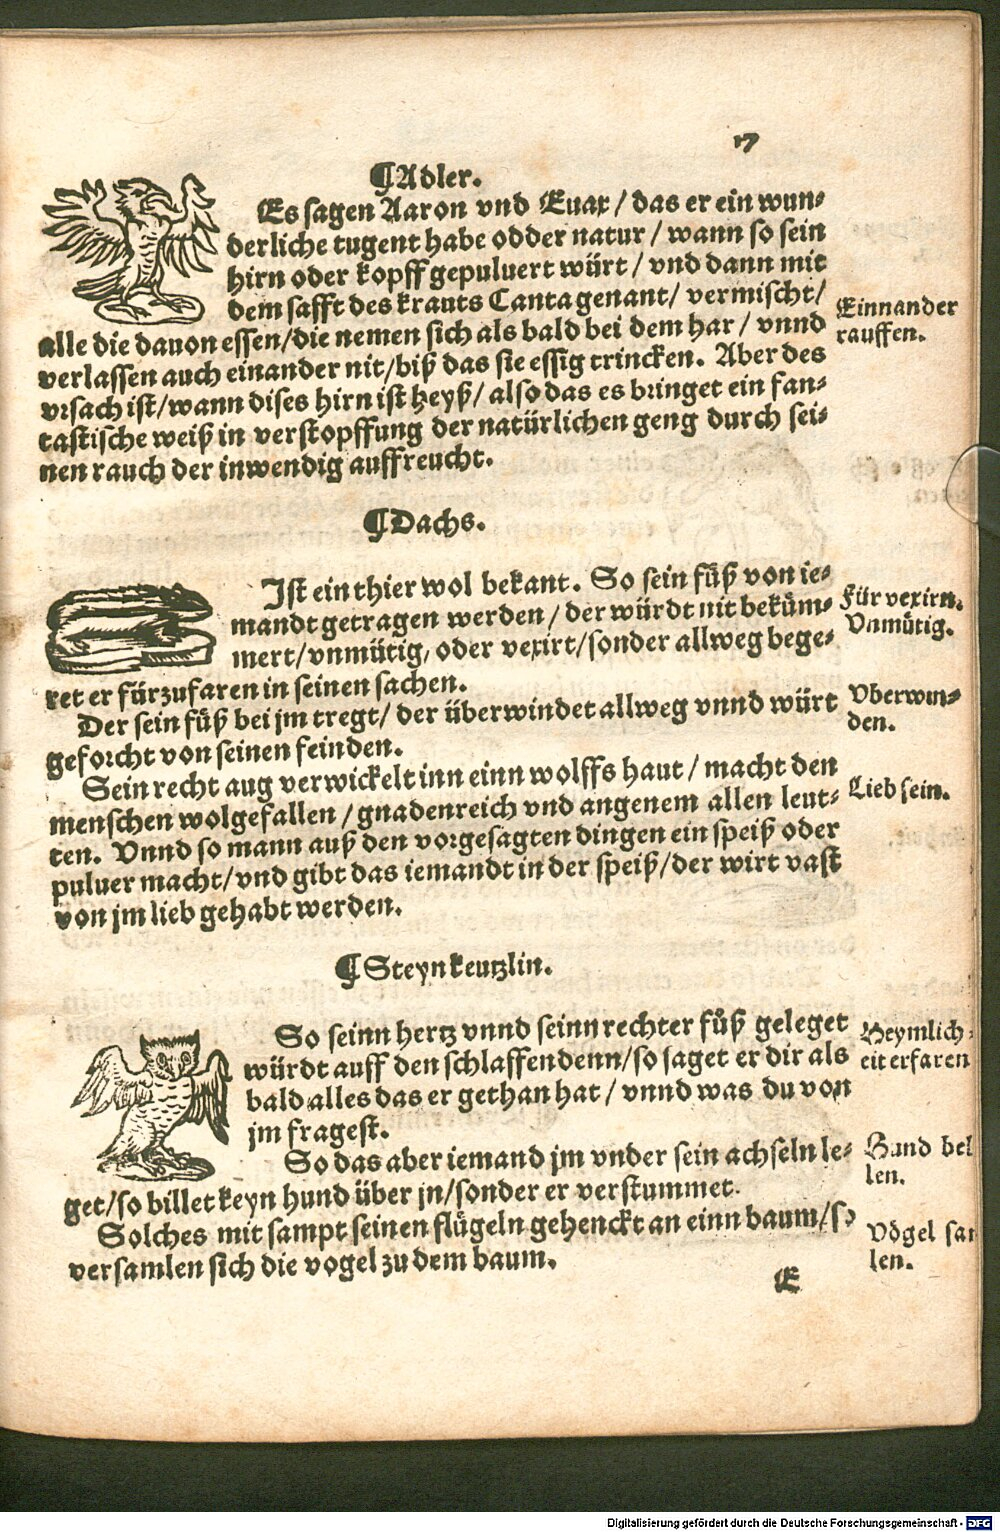 17
¶Adler.
Es sagen Aaron vnd Euax / das er ein wun⸗
derliche tugent habe odder natur / wann so sein
hirn oder kopff gepuluert würt / vnd dann mit
dem safft des krauts Canta genant / vermischt /
alle die dauon essen / die nemen sich als bald bei dem har / vnnd
verlassen auch einander nit / biß das sie essig trincken. Aber des
vrsach ist / wann dises hirn ist heyß / also das es bringet ein fan⸗
tastische weiß in verstopffung der natürlichen geng durch sei⸗
nen rauch der inwendig auffreucht.
Einnander
rauffen.
¶Dachs.
Ist ein thier wol bekant. So sein füß von ie⸗
mandt getragen werden / der würdt nit beküm⸗
mert / vnmütig, oder vexirt / sonder allweg bege⸗
ret er fürzufaren in seinen sachen.
Für vexirn.
Vnmütig.
Der sein füß bei jm tregt / der überwindet allweg vnnd würt
geforcht von seinen feinden.
Vberwin⸗
den.
Sein recht aug verwickelt inn einn wolffs haut / macht den
menschen wolgefallen / gnadenreich vnd angenem allen leut⸗
ten. Vnnd so mann auß den vorgesagten dingen ein speiß oder
puluer macht / vnd gibt das iemandt in der speiß / der wirt vast
von jm lieb gehabt werden.
Lieb sein.
¶Steynkeutzlin.
So seinn hertz vnnd seinn rechter füß geleget
würdt auff den schlaffendenn / so saget er dir als
bald alles das er gethan hat / vnnd was du von
jm fragest.
Heymlich⸗
eit erfaren
So das aber iemand jm vnder sein achseln le⸗
get / so billet keyn hund über jn / sonder er verstummet.
Hund bel
len.
Solches mit sampt seinen flügeln gehenckt an einn baum / so
versamlen sich die vogel zu dem baum.
Vögel sam
len.
E
Digitalisierung gefördert durch die Deutsche Forschungsgemeinschaft - DFG